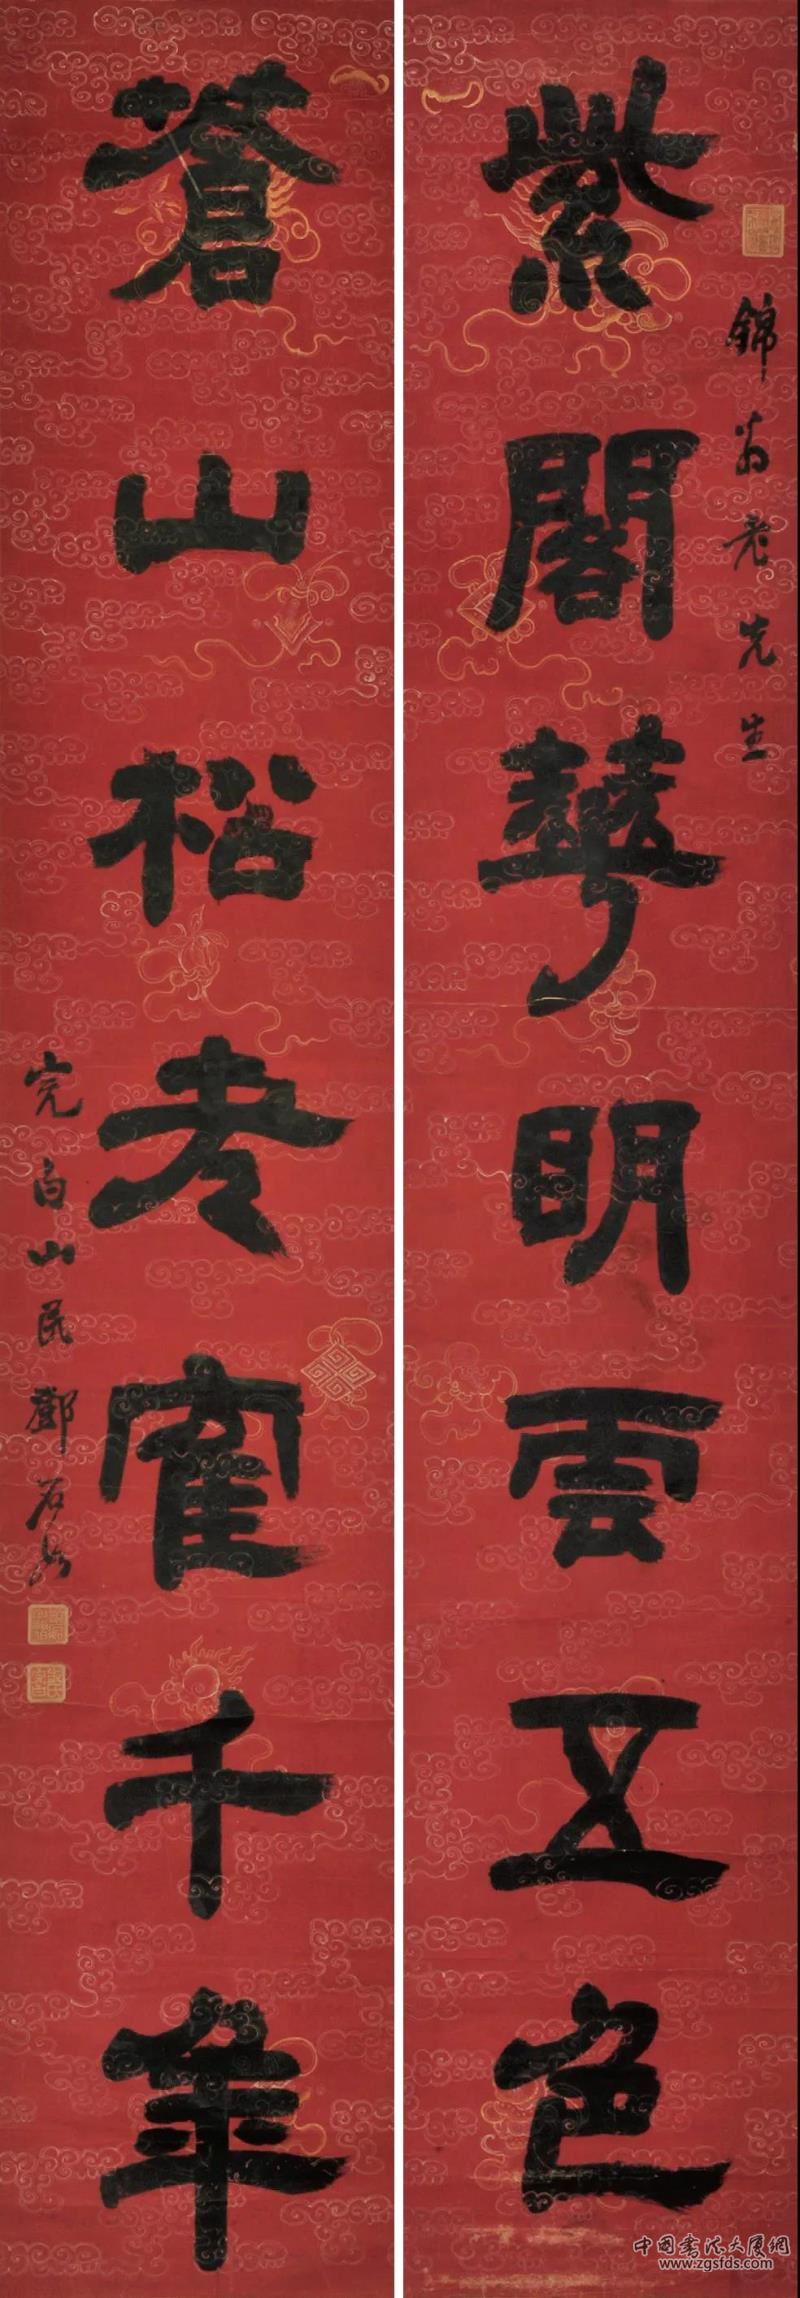 錦翁老先生
紫閣華明雲五色
蒼山松老寉千年
完白山民鄧石如
中國書法大廈網
www.zgsfds.com